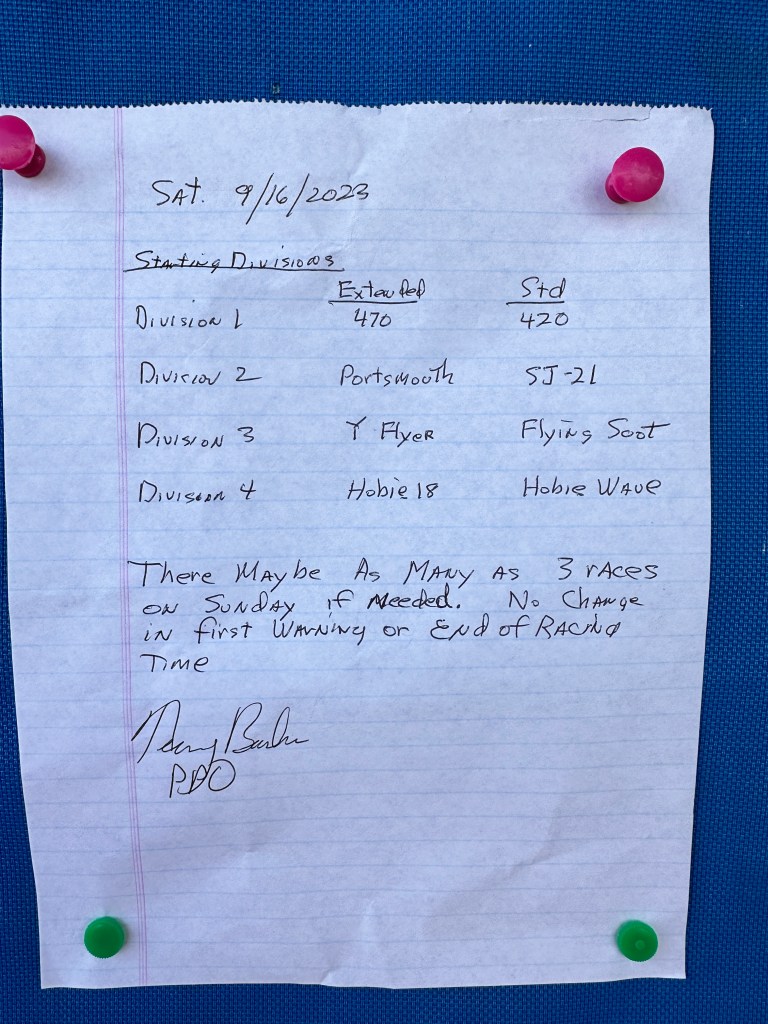 SAT. 9/16/2023
Starting Divisions
Extended Std
Division 1 470 420
Division 2 Portsmouth SJ-21
Division 3 Y Flyer Flying Scot
Division 4 Hobie 18 Hobie Wave
There Maybe As MANY AS 3 rAces
ON SUNDAY if Needed. No Change
in first WArning or End of RACING
Time